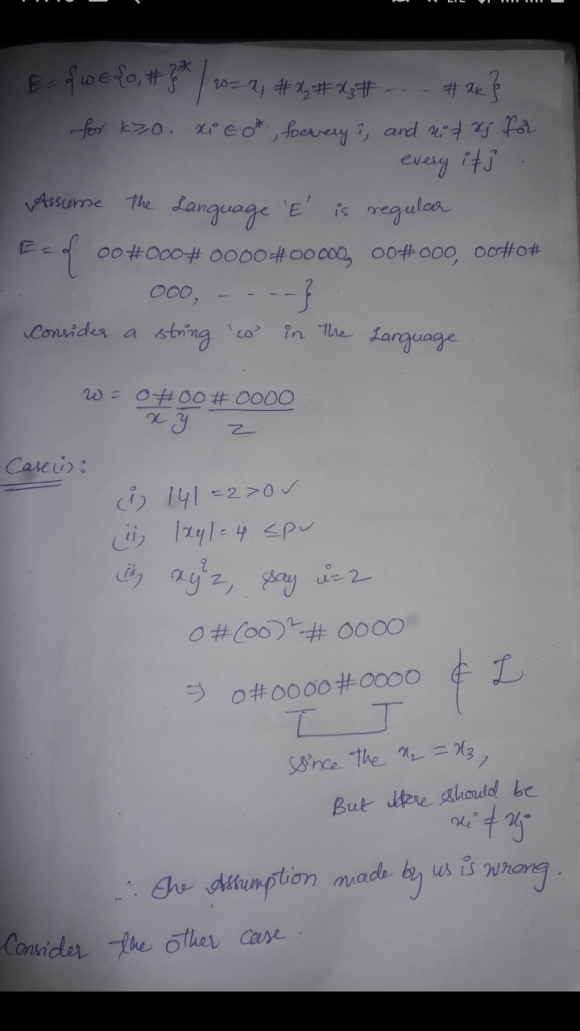 E = {w∈{0,#}* / w = x₁ #x₂#x₃# - - - - # xₖ}
for k≥0. xi ∈ 0*, for every i, and xi ≠ xj for
every i≠j.
Assume the Language 'E' is regular
E = { 00#000#0000#00000, 00#000, 00#0#
000, - - - - - }
Consider a string 'w' in the Language
w = 0#00#0000
x y z
Case(i):
(i) |y| = 2 > 0 ✓
(ii) |xy| = 4 ≤ p ✓
(iii) xyⁱz, say i=2
0#(00)²#0000
⇒ 0#0000#0000 ∉ L
Since the x₂ = x₃,
But there should be
xi ≠ xj
∴ The Assumption made by us is wrong.
Consider the other case.